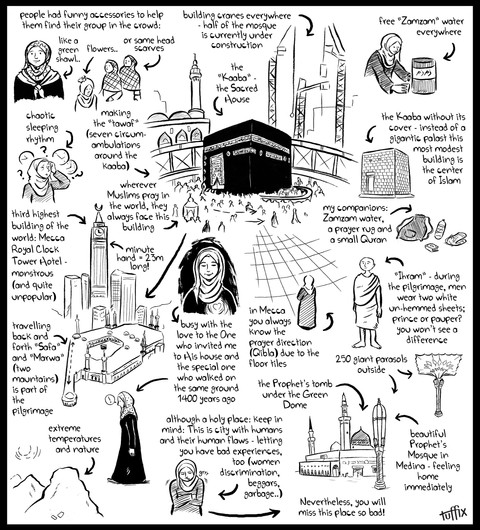 people had funny accessories to help
them find their group in the crowd:
like a
green
shawl..
flowers..
or same head
scarves
building cranes everywhere
- half of the mosque
is currently under
construction
free "Zamzam" water
everywhere
the
"Kaaba" -
the Sacred
House
chaotic
sleeping
rhythm
making
the "tawaf"
(seven circum-
ambulations
around the
kaaba)
the Kaaba without its
cover - instead of a
gigantic palast this
most modest
building is the
center
of Islam
wherever
Muslims pray in
the world, they
always face this
building
my companions:
Zamzam water,
a prayer rug and
a small Quran
third highest
building of the
world: Mecca
Royal Clock
Tower Hotel -
monstrous
(and quite
unpopular)
minute
hand = 23m
long!
"Ihram" - during
the pilgrimage, men
wear two white
un-hemmed sheets;
prince or pauper?
you won't see a
difference
in Mecca
you always
know the
prayer direction
(Qibla) due to the
floor tiles
busy with
the love to the One
who invited me
to His house and
the special one
who walked on
the same ground
1400 years ago
travelling
back and
forth "Safa"
and "Marwa"
(two
mountains)
is part of
the
pilgrimage
250 giant parasols
outside
the Prophet's tomb
under the Green
Dome
beautiful
Prophet's
Mosque in
Medina - feeling
home
immediately
extreme
temperatures
and nature
although a holy place: keep in
mind: This is city with humans
and their human flaws - letting
you have bad experiences,
too (women
discrimination,
beggars,
garbage..)
Nevertheless, you will
miss this place so bad!
tuffix